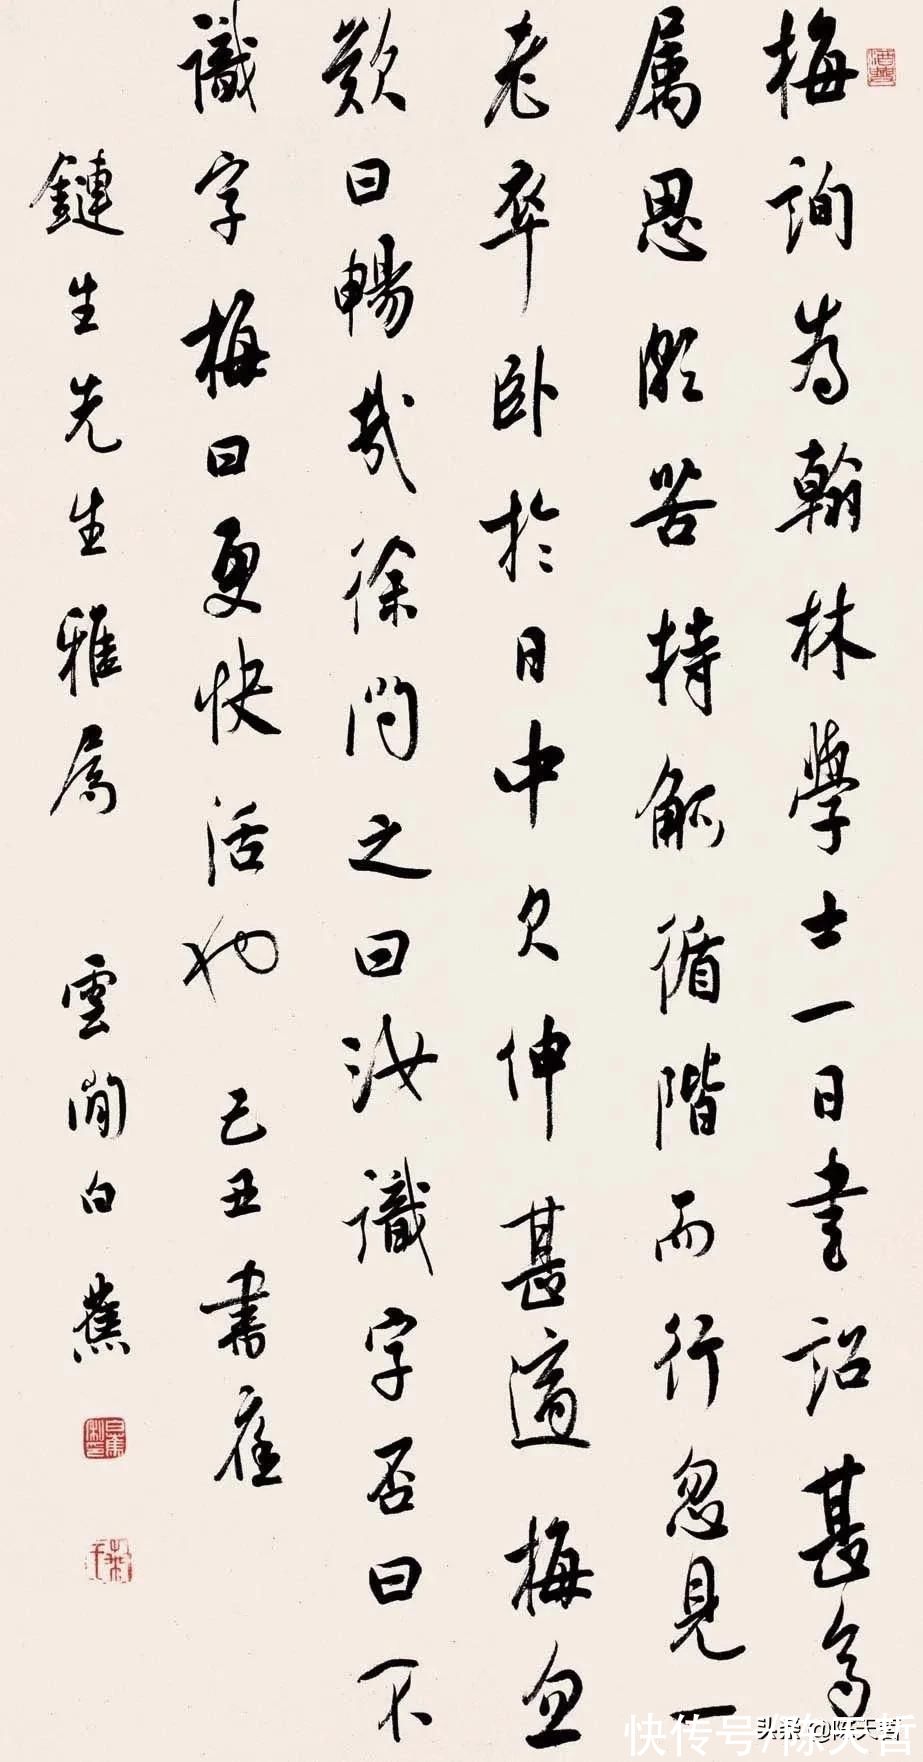 梅詢為翰林學士一日書詔甚多
属思頗苦持觚循階而行忽見一
老卒卧於日中欠伸甚適梅忽
歎曰暢哉徐問之曰汝識字否曰不
識字梅曰更快活也 己丑書應
鏈生先生雅属 雲間白蕉
快传号/陈天哲
头条 @陈天哲